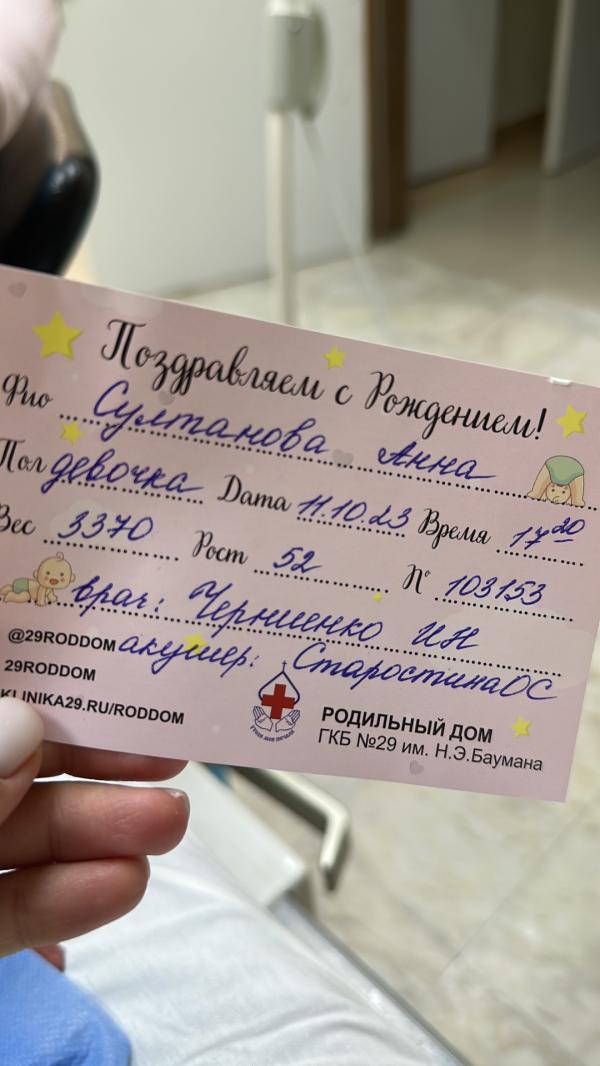 Поздравляем с Рождением!
Фио Султанова Анна
Пол девочка Дата 11.10.23 Время 17 20
Вес 3370 Рост 52 № 103153
врач: Черниенко ИН
@29RODDOM акушер: Старостина ОС
29RODDOM
KLINIKA29.RU/RODDOM
РОДИЛЬНЫЙ ДОМ
ГКБ №29 им. Н.Э.Баумана